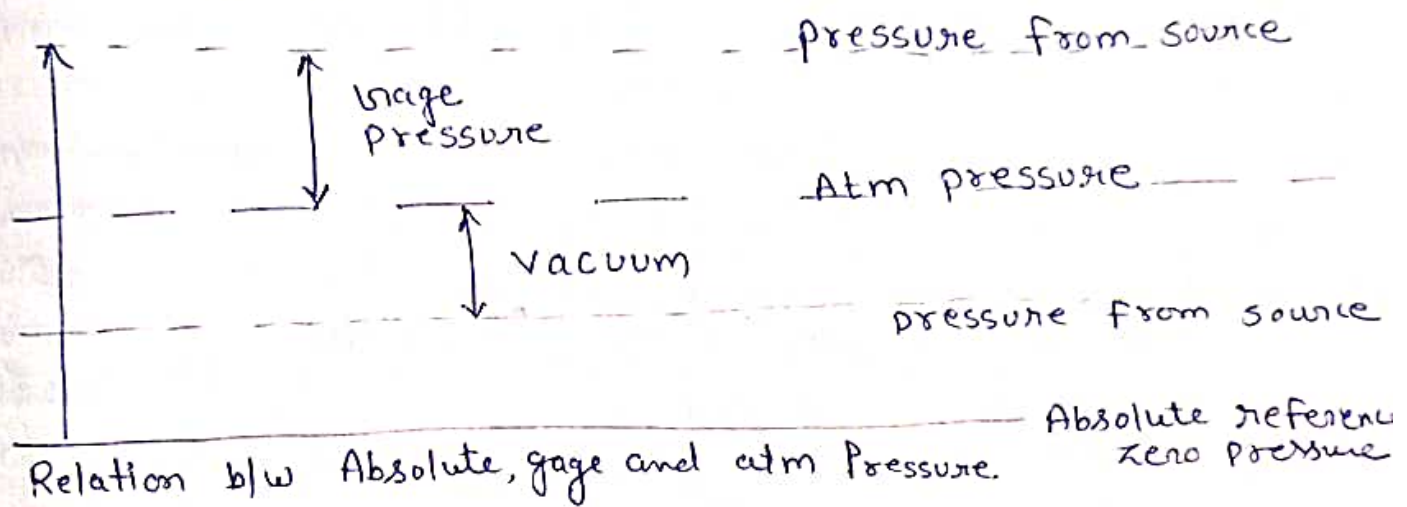 Pressure from source
Gage
Pressure
Atm pressure
Vacuum
pressure from source
Absolute referenc
zero pressure
Relation b/w Absolute, gage and atm Pressure.